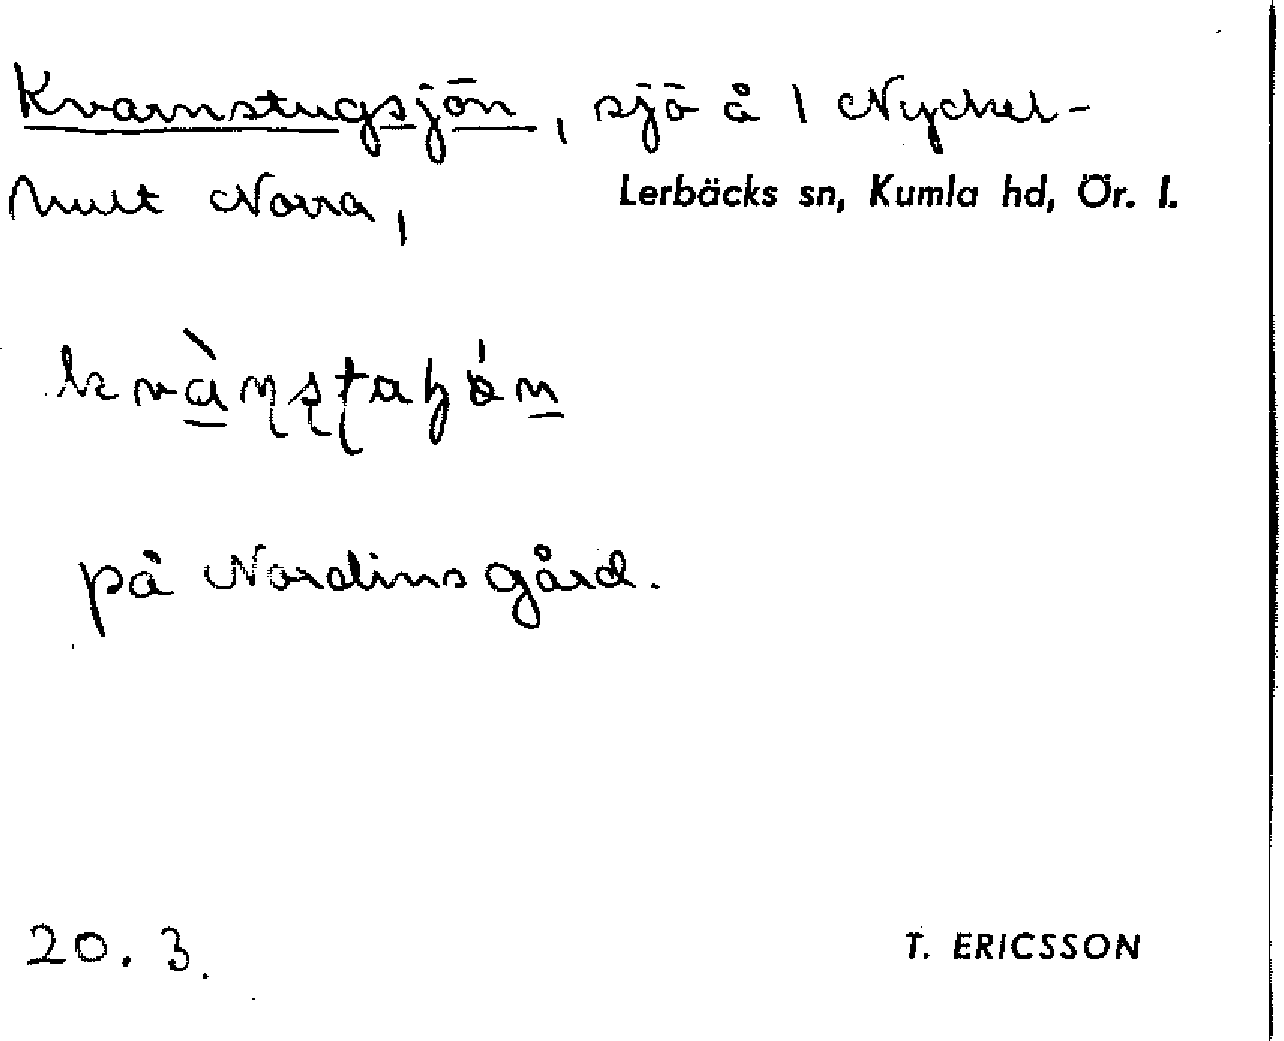 Kvarnstugsjön, sjö å 1 Nyckel-
hult Norra,
Lerbäcks sn, Kumla hd, Ör. l.
på Nordinsgård.
20. 3.
T. ERICSSON